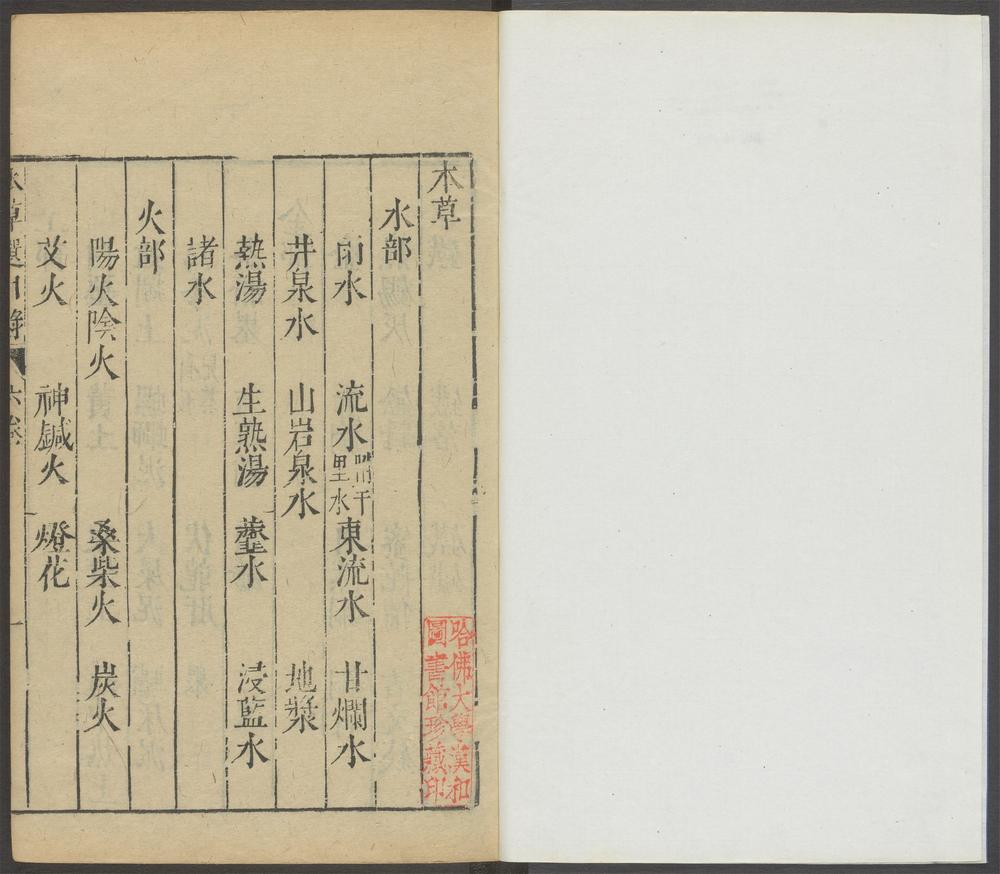 本草
水部
雨水 流水 附千里水 東流水 甘爛水
井泉水 山岩泉水 地漿
熱湯 生熟湯 虀水 浸藍水
諸水
火部
陽火陰火 桑柴火 炭火
艾火 神鍼火 燈花
本草選 六卷 一
哈佛大學漢和
圖書館珍藏印